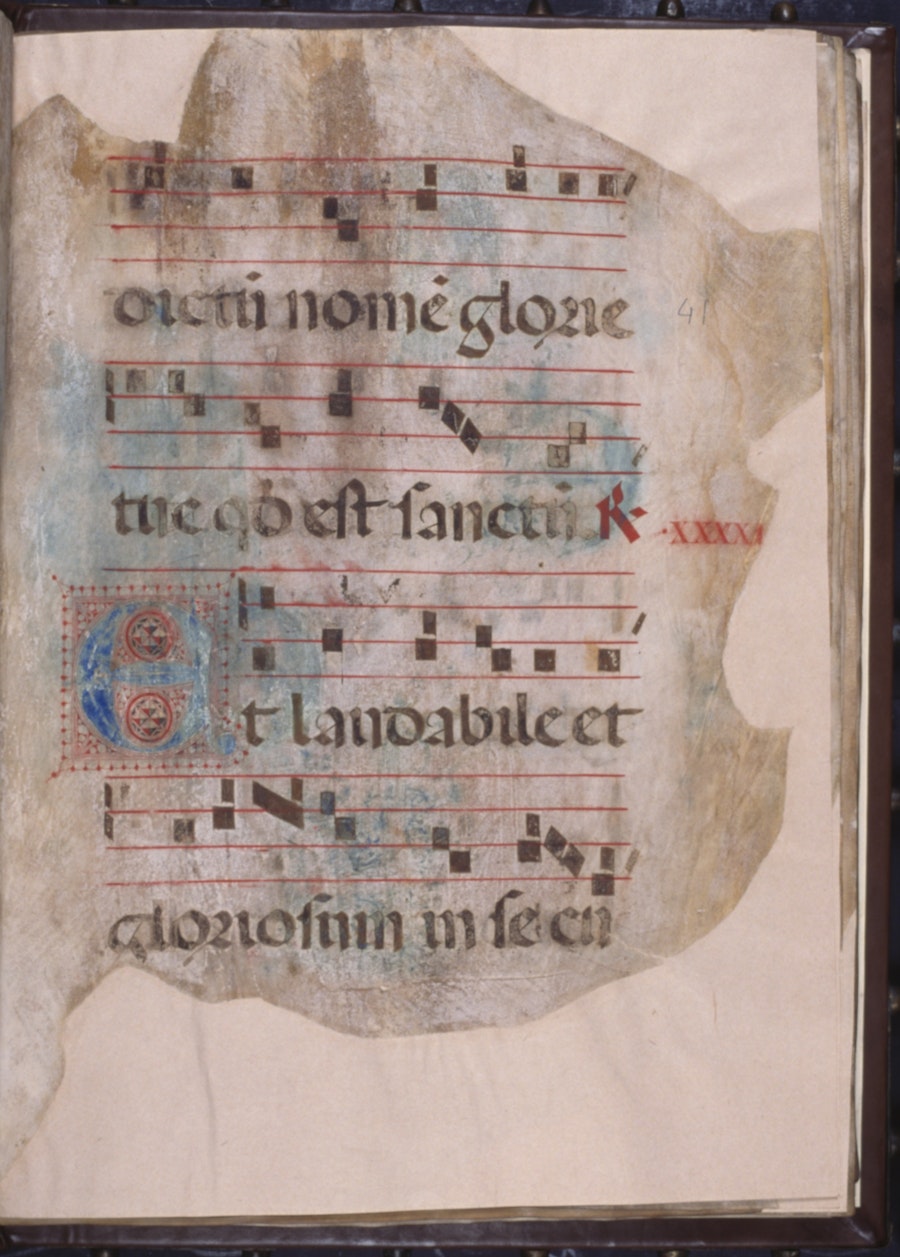 dictū nomē glorie 41
tue qd̄ est sanctū R XXXXI
Et laudabile et
gloriosum in secu